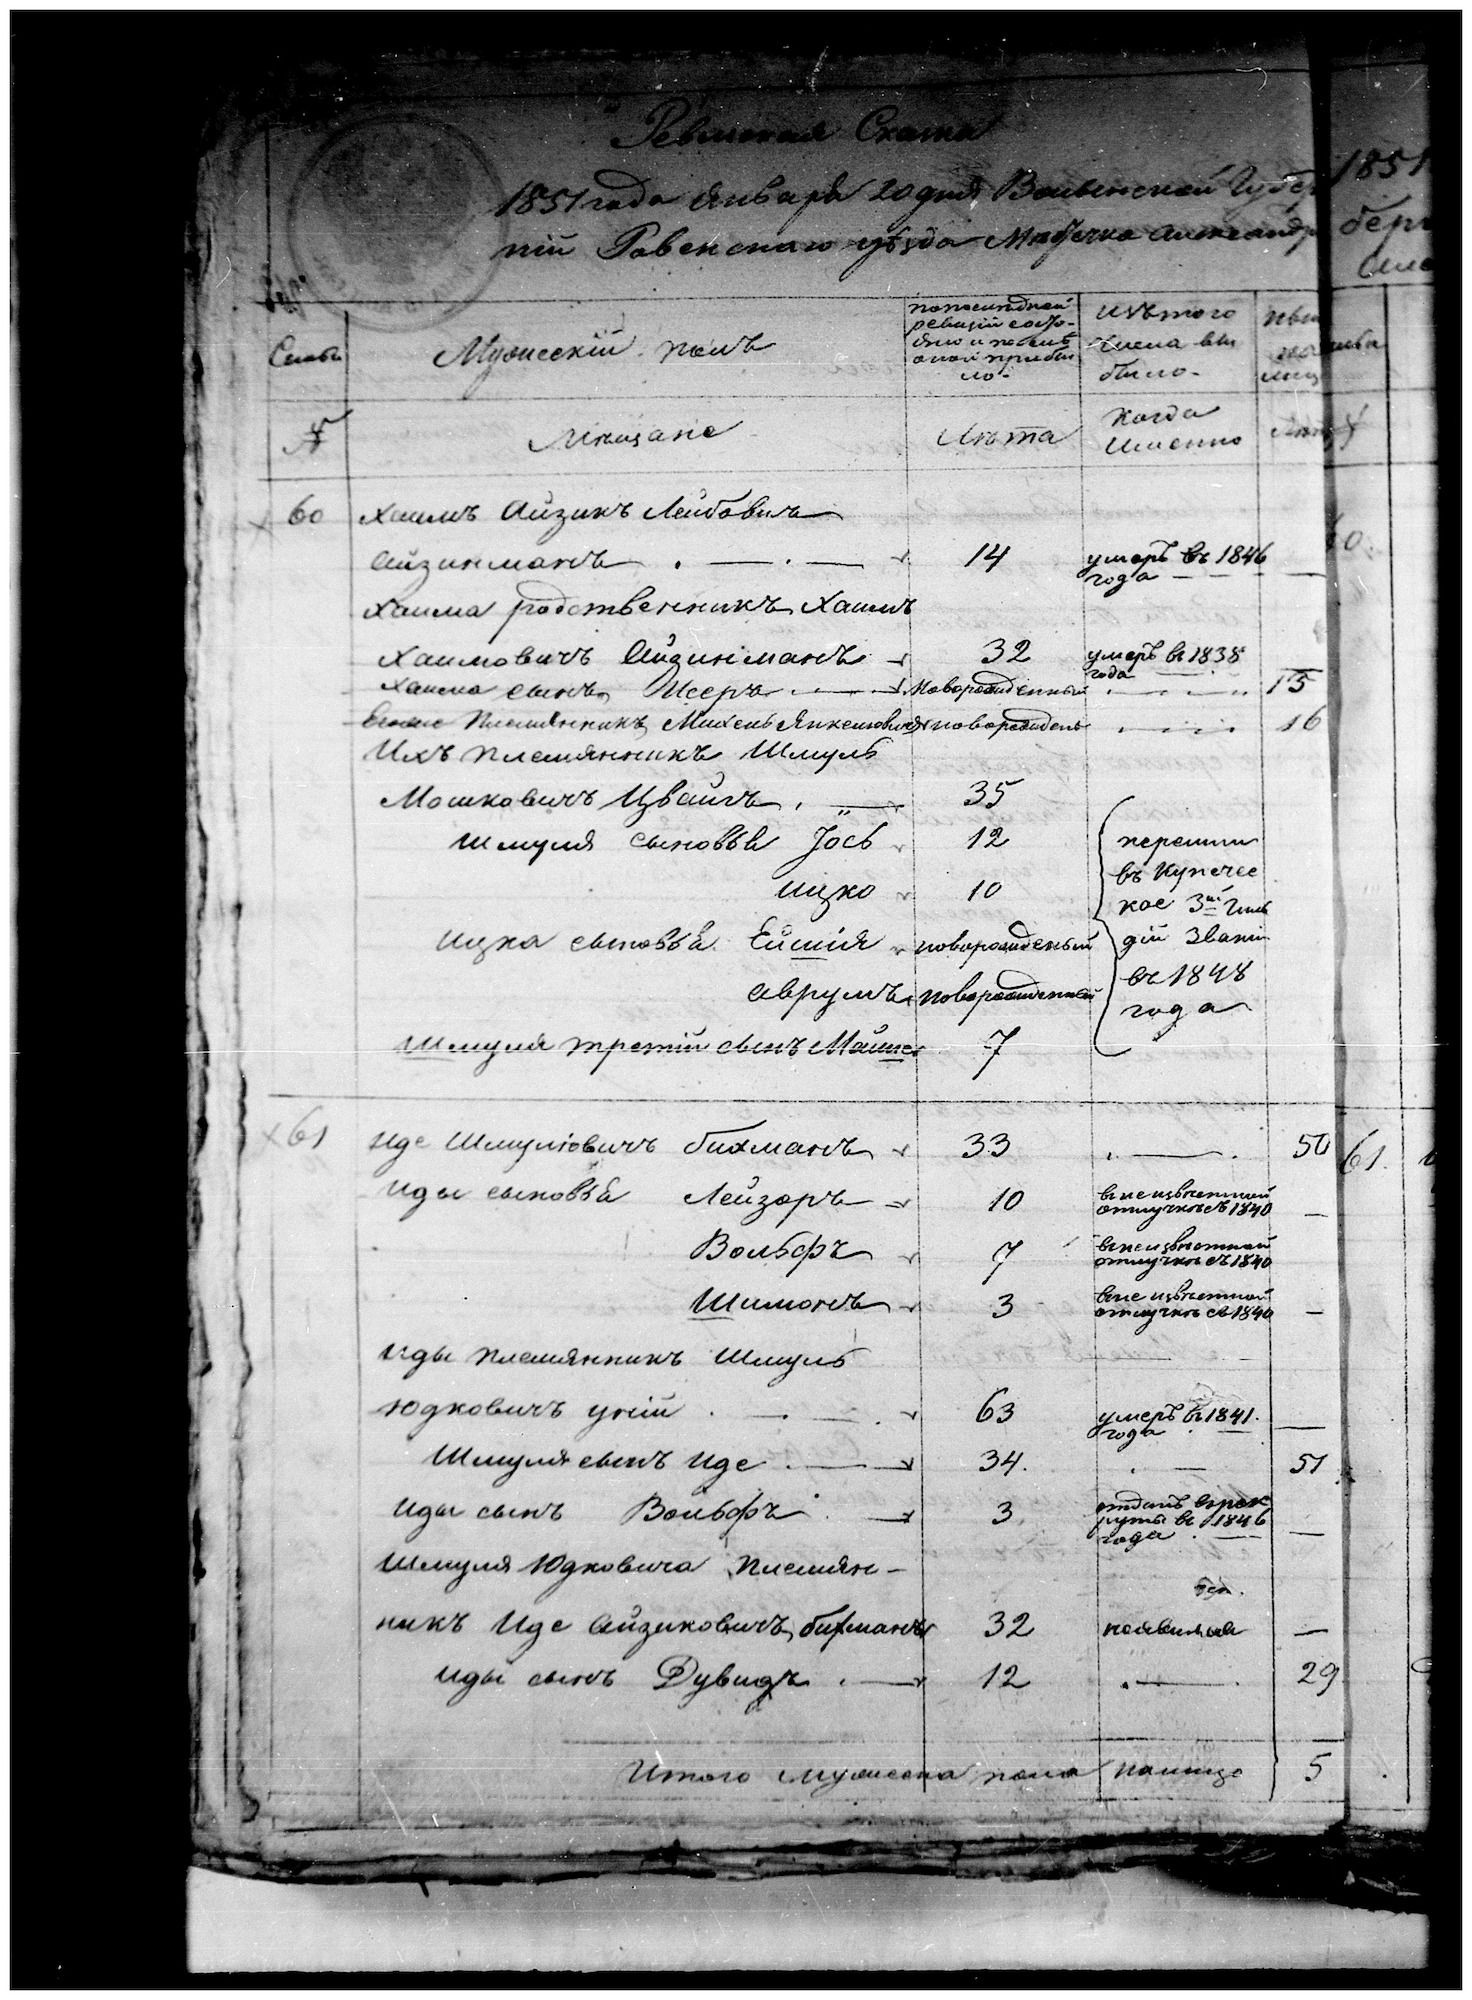 Ревизская Сказка
1851 года Января 20 дня Волынской Губер
ніи Ровенскаго уѣзда Мѣстечка Александр
Семьи
Мужескій полъ
по последней
ревизіи состо-
яло и послѣ
оной прибы
ло-
Изъ того
числа вы
было-
№
Мѣщане
Лѣта
Когда
Именно
60 Хаимъ Айзикъ Лейбовичъ
Айзинманъ 14 умеръ въ 1846
года
Хаима родственникъ Хаимъ
Хаимовичъ Айзинманъ 32 умеръ въ 1838
года
Хаима сынъ Исеръ Новорожденный 15
Племянникъ Михель Янкелевичъ новорожденъ 16
Ихъ племянникъ Шмуль
Мошковичъ Цвайгъ 35
Шмуля сыновья Іось 12
Ицко 10
Ицка сыновья Ейшія новорожденый
Аврумъ новорожденный
Шмуля третій сынъ Мошке 7
перешли
въ Купечес
кое 3й Гиль
діи Званіе
въ 1848
года
61 Иде Шмулювичъ Бихманъ 33 50
Иды сыновья Лейзоръ 10 въ неизвѣстной
отлучкѣ съ 1840 —
Вольфъ 7 въ неизвѣстной
отлучкѣ съ 1840
Шимонъ 3 въ неизвѣстной
отлучкѣ съ 1840 —
Иды племянникъ Шмуль
Юдковичъ 63 умеръ въ 1841
года —
Шмуля сынъ Иде 34. 51
Иды сынъ Вольфъ 3 отданъ в рек
руты въ 1846
года —
Шмуля Юдковича племян-
никъ Иде Айзиковичъ Бихманъ 32 —
Иды сынъ Дувидъ 12 29
Итого мужеска пола налицо 5
1851
61.